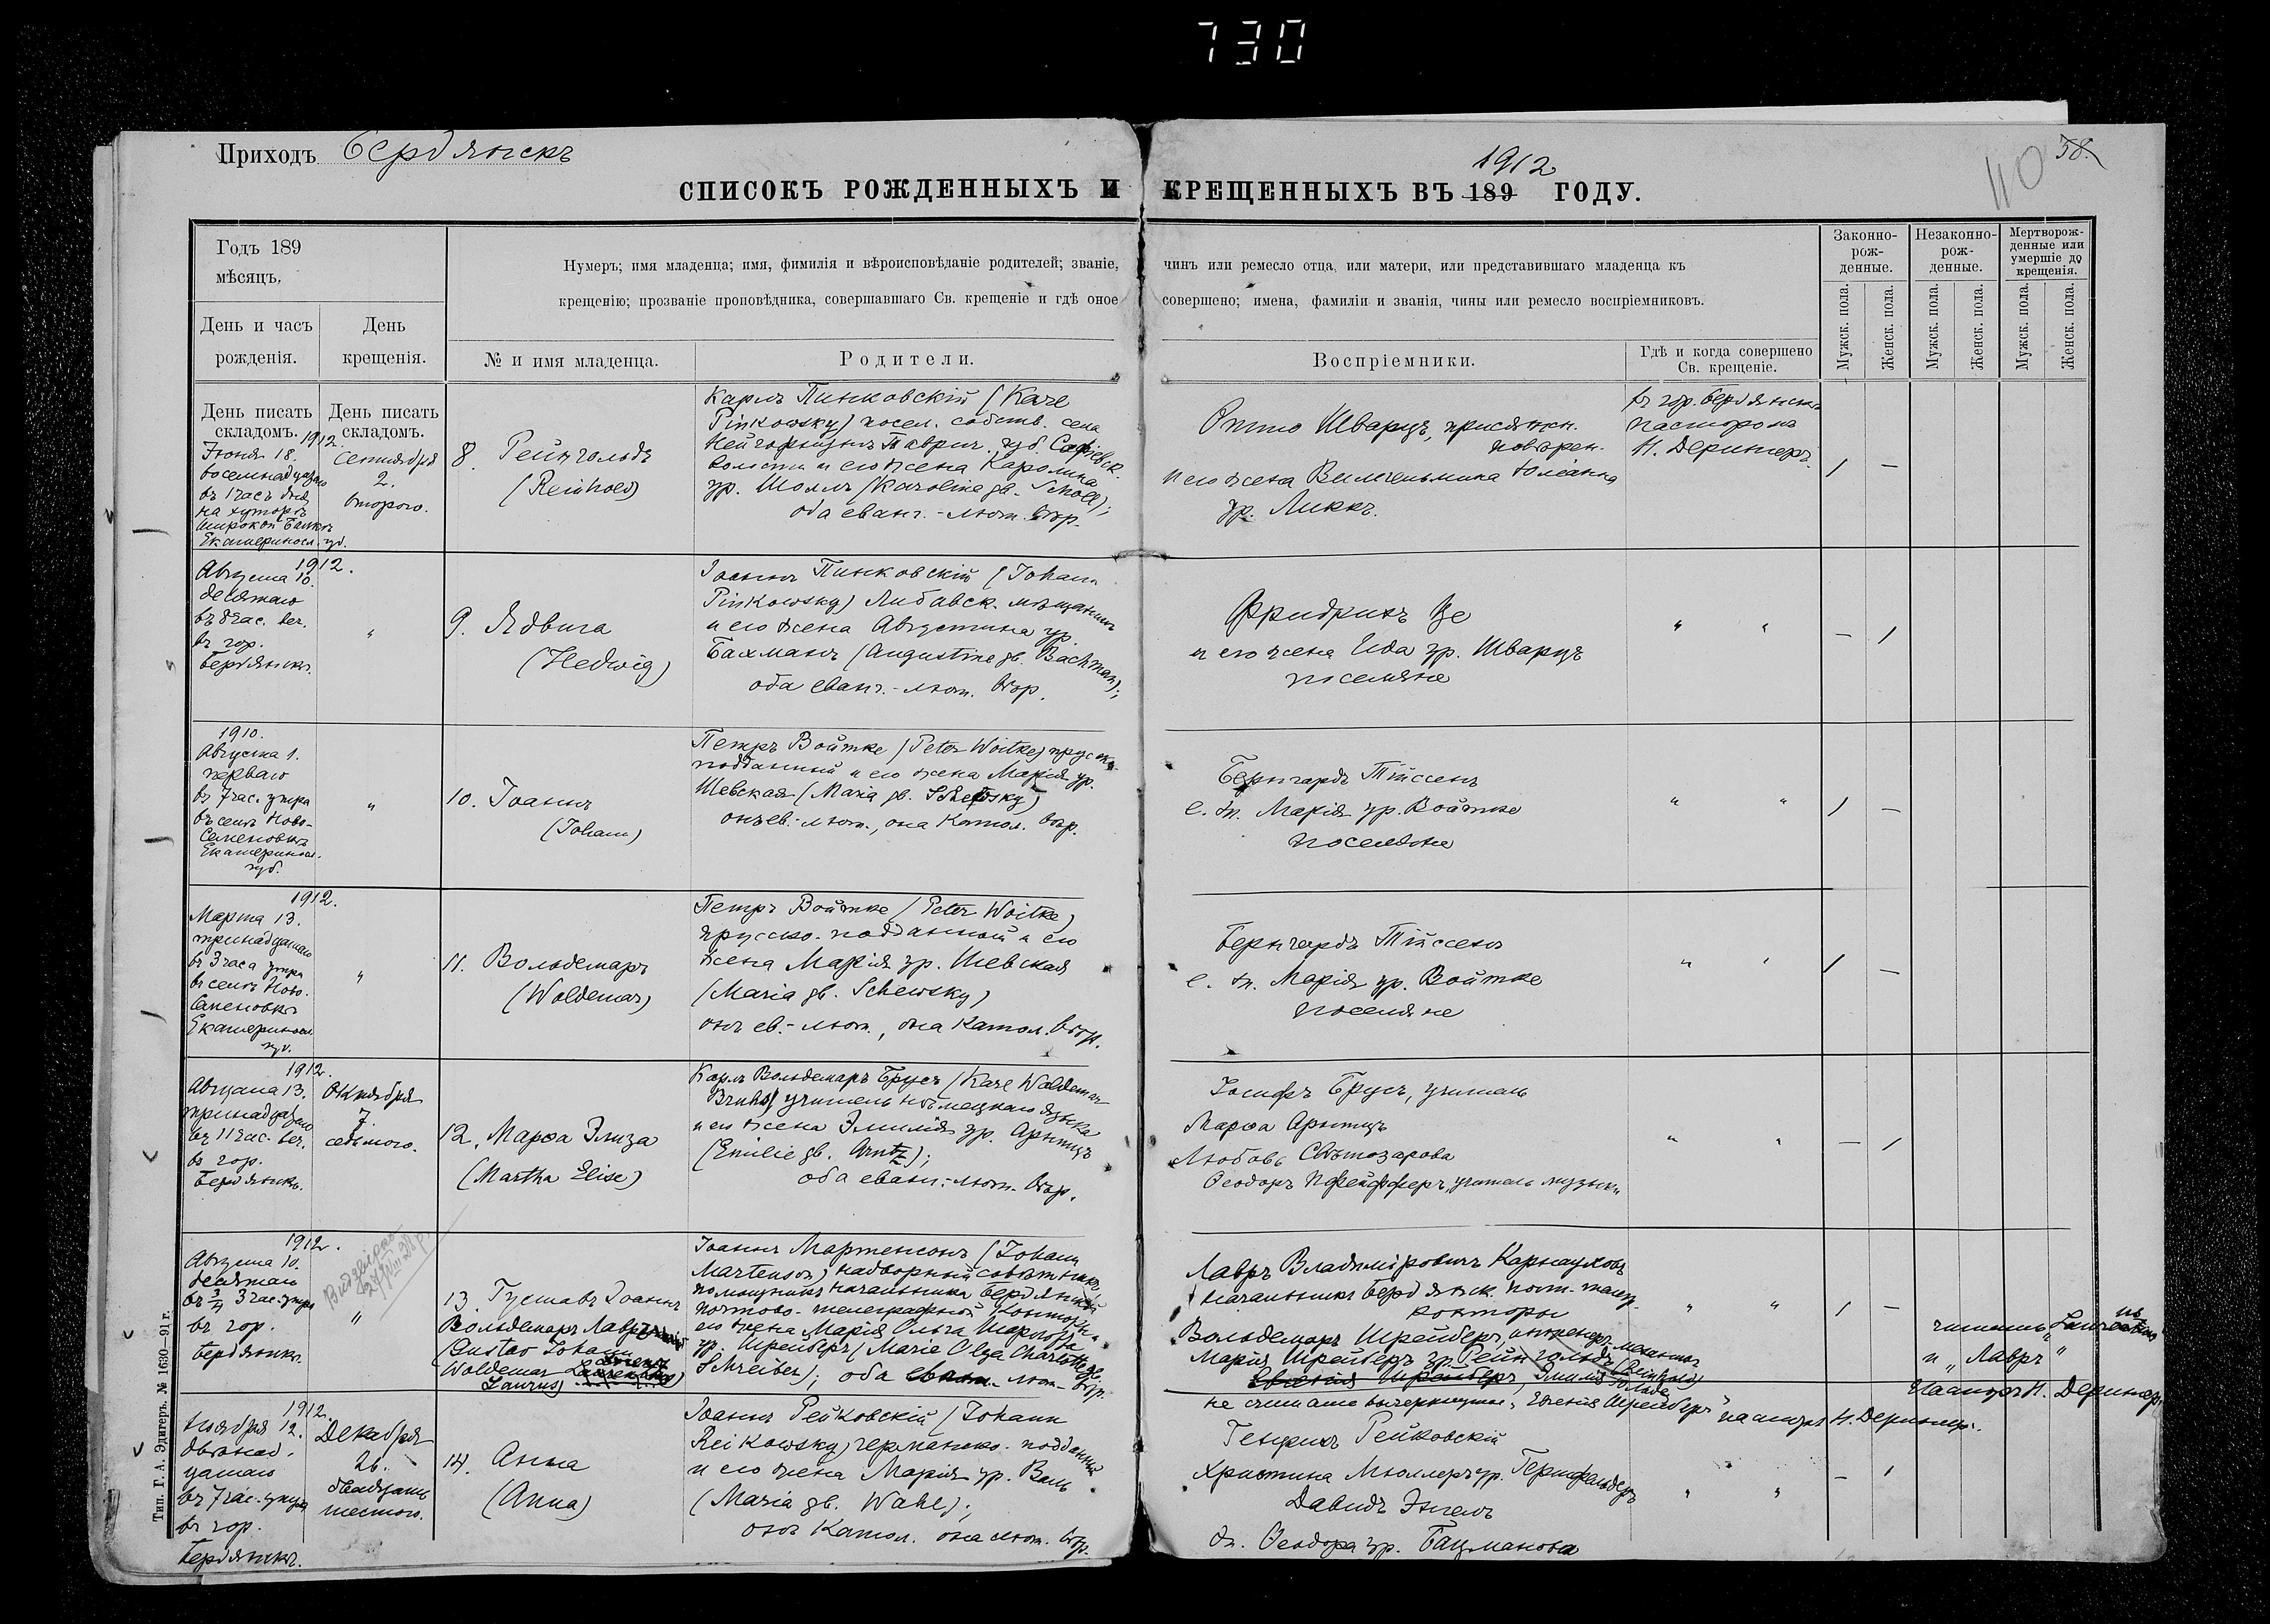 730
Приходъ Бердянскъ
110
38.
1912
СПИСОКЪ РОЖДЕННЫХЪ И КРЕЩЕННЫХЪ ВЪ 189 ГОДУ.
Годъ 189
мѣсяцъ.
День и часъ
рожденія.
День
крещенія.
Нумеръ; имя младенца; имя, фимилія и вѣроисповѣданіе родителей; званіе, чинъ или ремесло отца, или матери, или представившаго младенца къ
крещенію; прозваніе проповѣдника, совершавшаго Св. крещеніе и гдѣ оное совершено; имена, фамиліи и званія, чины или ремесло воспріемниковъ.
№ и имя младенца.
Родители.
Воспріемники.
Гдѣ и когда совершено
Св. крещеніе.
Законно-
рож-
денные.
Незаконно-
рож-
денные.
Мертворож-
денные или
умершіе до
крещенія.
Мужск. пола.
Женск. пола.
Мужск. пола.
Женск. пола.
Мужск. пола.
Женск. пола.
День писать
складомъ.
День писать
складомъ.
1912.
Іюня 18.
восемнадцатаго
въ 1 часъ дня
на хуторѣ
Широкой Балкѣ
Екатериносл. губ.
Сентября
2.
втораго.
8. Рейнгольдъ
(Reinhold)
Карлъ Пинковскій (Karl
Pinkowsky) посел. собств. села
Таврич. губ.
волости и его жена Каролина
ур. Шоллъ (Karoline gb. Scholl);
оба еванг.-лют. вѣр.
Отто Шварцъ, присяжн.
повѣрен.
и его жена Вильгельмина Юліанна
ур. Ликкъ.
въ гор. Бердянскѣ
пасторомъ
Н. Дерингеръ.
1 —
1912.
Августа 10.
десятаго
въ 8 час. веч.
въ гор.
Бердянскѣ.
"
9. Ядвига
(Hedwig)
Іоаннъ Пинковскій (Johann
Pinkowsky) Либавск. мѣщанинъ
и его жена Августина ур.
Бахманъ (Augustine gb. Bachmann);
оба еванг.-лют. вѣр.
Фридрихъ Це
и его жена Ида ур. Шварцъ
поселяне
" "
— 1
1910.
Августа 1.
перваго
въ 7 час. утра
въ селѣ Ново-
Семеновкѣ
Екатериносл.
губ.
"
10. Іоаннъ
(Johann)
Петръ Войтке (Peter Woitke) прусск.
подданный и его жена Марія ур.
Шевская (Maria gb. Schewsky)
онъ ев.-лют., она катол. вѣр.
Бернгардъ Тиссенъ
е. ж. Марія ур. Войтке
поселяне
" "
1 —
1912.
Марта 13.
тринадцатаго
въ 3 часа утра
въ селѣ Ново-
Семеновкѣ
Екатериносл.
губ.
"
11. Вольдемаръ
(Woldemar)
Петръ Войтке (Peter Woitke)
прусско-подданный и его
жена Марія ур. Шевская
(Maria gb. Schewsky)
онъ ев.-лют., она катол. вѣр.
Бернгардъ Тиссенъ
е. ж. Марія ур. Войтке
поселяне
" "
1 —
1912.
Августа 13.
тринадцатаго
въ 11 час. веч.
въ гор.
Бердянскѣ.
Октября
7.
седьмого.
12. Марѳа Элиза
(Martha Elise)
Карлъ Вольдемаръ Брусъ (Karl Woldemar
Bruhs) учитель нѣмецкаго языка
и его жена Эмилія ур. Арнтцъ
(Emilie gb. Arntz);
оба еванг.-лют. вѣр.
Іосифъ Брусъ, учитель
Марѳа Арнтцъ
Любовь Свѣтозарова
Ѳеодоръ Пфейфферъ, учитель музыки
" "
— 1
1912.
Августа 10.
десятаго
въ 3/4 3 час. утра
въ гор.
Бердянскѣ.
"
13. Густавъ Іоаннъ
Вольдемаръ Лавръ
(Gustav Johann
Woldemar
Laurus)
Іоаннъ Мартенсонъ (Johann
Martenson) надворный совѣтникъ,
помощникъ начальника Бердянской
почтово-телеграфной конторы и
его жена Марія Ольга Шарлотта
ур. Шрейберъ (Marie Olga Charlotte gb.
Schreiber); оба лют. вѣр.
Лавръ Владиміровичъ Карнауховъ
начальникъ Бердянск. почт.-телегр.
конторы
Вольдемаръ Шрейберъ, инженеръ-механикъ
Марія Шрейберъ ур. Рейнгольдъ (Reinhold)
Евгенія Шрейберъ, Эмилія
не считать вычеркнутое "Евгенія Шрейберъ" пасторъ Н. Дерингеръ.
" "
1 —
читать
и "Лавръ"
Пасторъ Н. Дерингеръ
1912.
Ноября 12.
двѣнад-
цатаго
въ 7 час. утра
въ гор.
Бердянскѣ.
Декабря
26.
двадцать
шестого.
14. Анна
(Anna)
Іоаннъ Рейковскій (Johann
Reikowsky) германско-подданный
и его жена Марія ур. Валь
(Maria gb. Wahl);
онъ катол. она лют. вѣр.
Генрихъ Рейковскій
Христина Мюллеръ ур.
Давидъ Энгель
ж. Ѳеодора ур. Бацманова
" "
— 1
Тип. Г. А. Эдигеръ. № 1630—91 г.